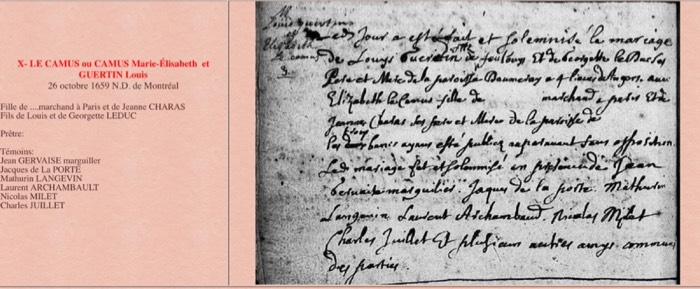 X- LE CAMUS ou CAMUS Marie-Élisabeth et
GUERTIN Louis
26 octobre 1659 N.D. de Montréal
Fille de ....marchand à Paris et de Jeanne CHARAS
Fils de Louis et de Georgette LEDUC
Prêtre:
Témoins:
Jean GERVAISE marguiller
Jacques de La PORTE
Mathurin LANGEVIN
Laurent ARCHAMBAULT
Nicolas MILET
Charles JUILLET
Led Jour a esté fait et solemnisé le mariage
de Louys Guertin et de Georgette le
Pere et Mere de la paroisse avec
Elizabeth le Camus fille de marchand a paris Et de
Jeanne Charas ses pere et Mere De la paroisse de
Les bans ayans esté publiez auparavant sans opposition
Led mariage fut et solemnisé en presence de Jean
Gervaise marguilier. Jaques de la porte. Mathurin
Langevin Laurent Archambaud. Nicolas Milet
Charles Juillet Et plusieurs autres amys communs
des parties.